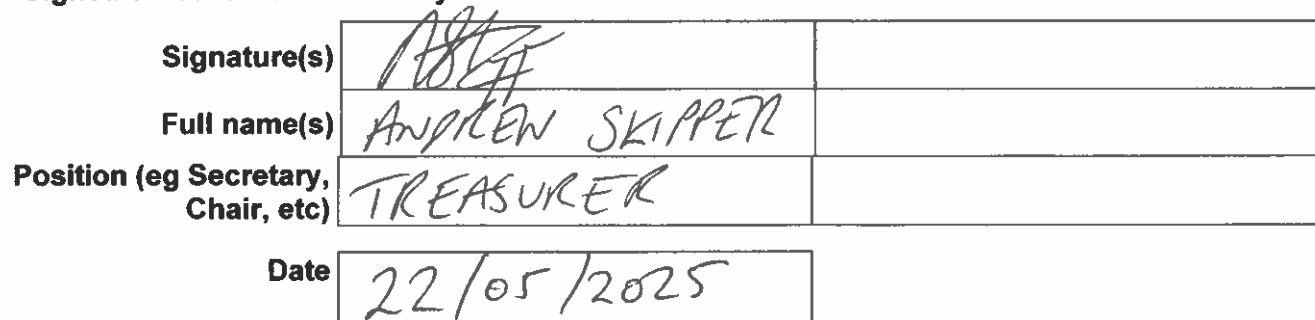 Signature(s)
Full name(s) ANDREW SKIPPER
Position (eg Secretary,
Chair, etc) TREASURER
Date 22/05/2025